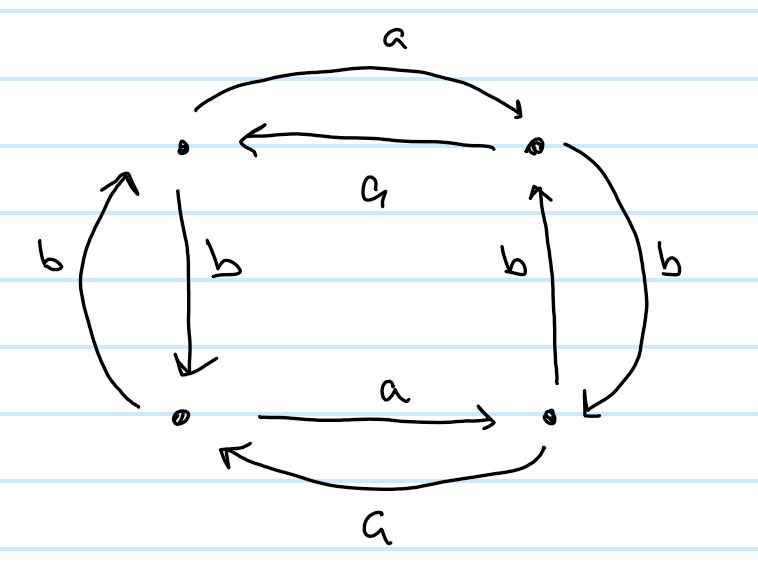 a
a
b b b b
a
a